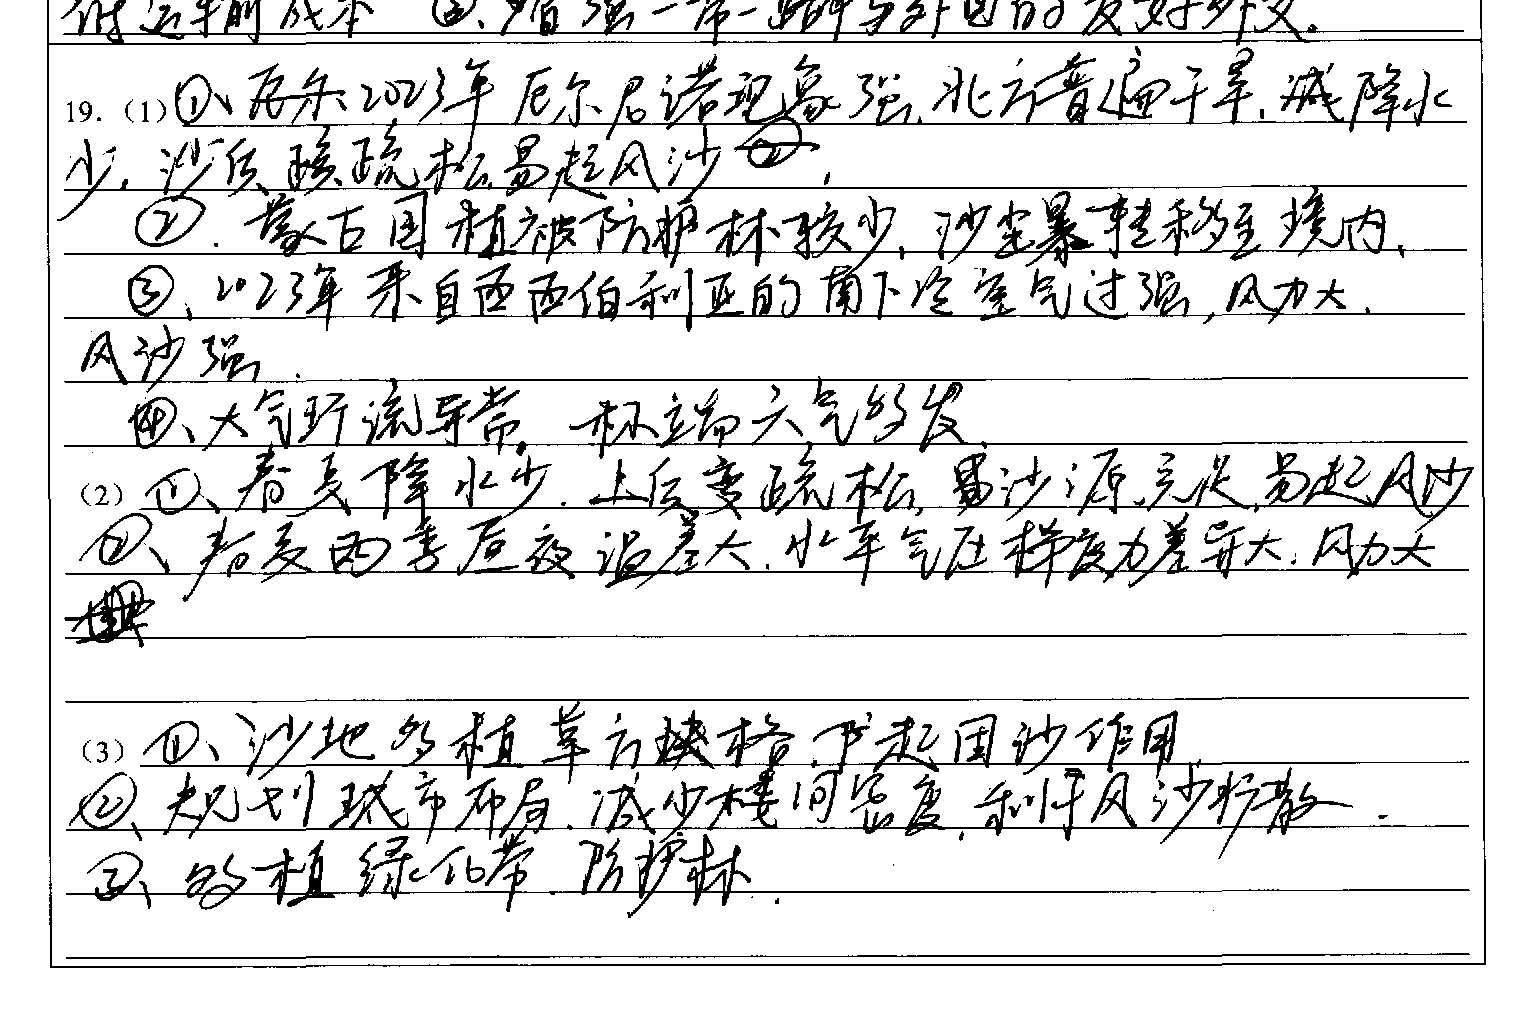 运输成本 ④、增强一带一路与外国的友好外交。
19.（1）①、厄尔 2023年厄尔尼诺现象强，北方普遍干旱，减降水
少，沙质疏松易起风沙，
②、蒙古国植被防护林较少，沙尘暴转移至境内、
③、2023年来自西西伯利亚的南下冷空气过强，风力大，
风沙强．
④、大气环流异常，极端天气多发、
（2）①、春夏降水少．土质变疏松，易沙源充足，易起风沙
②、春夏两季昼夜温差大．水平气压梯度力差异大．风力大
（3）①、沙地多植草方块格，下起固沙作用，
②、规划城市布局．减少楼间密度，利于风沙扩散．
③、多植绿化带．防护林．